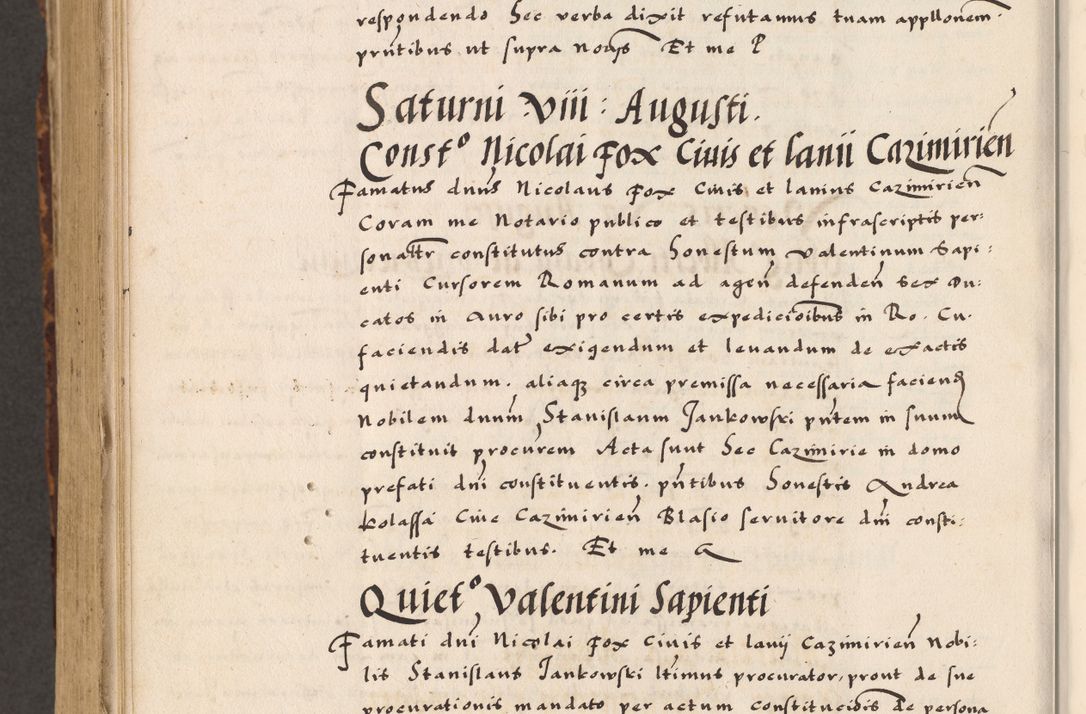 respondendo Hec verba dixit refutamus tuam appllonem.
prntibus ut supra Et me P
Saturni viii: Augusti.
Const° Nicolai Fox Civis et lanii Cazimirien
Famatus dnus Nicolaus Fox Civis et lanius Cazimirien
Coram me Notario publico et testibus infrascriptis per:
sonaltr constitutus contra Honestum Valentinum Sapi:
enti Cursorem Romanum ad agen defenden sex Du:
catos in Auro sibi pro certis expedicioibus in Ro. Cu.
faciendis dat exigendum et levandum de exactis
quietandum. aliaq circa premissa necessaria faciend
Nobilem dnum Stanislaum Jankowski pntem in suum
constituit procurem Acta sunt Hec Cazimirie in domo
prefati dni constituentis. pntibus Honestis Andrea
kolassa Cive Cazimirien Blasio servitore dni consti:
tuentis testibus. Et me
Quiet° Valentini Sapienti
Famati dni Nicolai Fox Civis et lanij Cazimirien Nobi:
lis Stanislaus Jankowski ltimus procurator, prout de sue
procurationis mandato per actum constitucois de persona